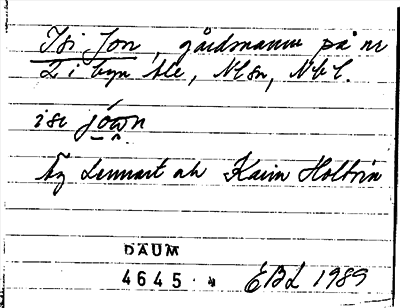 Isi Jon, gårdsmannen på nr
2 i byn Ale, Nlsn, Nbl.
isi jówn
Äg Lennart och Karin Holtvin
DAUM
4645
EBL 1989